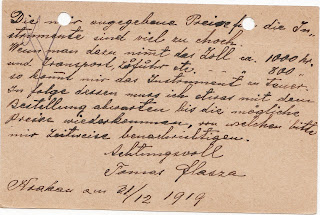 Die mir angegebene Preise für die In-
strumente sind viel zu hoch.
Wenn man dazu nimmt das Zoll ca. 1000 kr.
und Transport, Zufuhr etc. - - „ 800 "
so kommt mir das Instrument zu teuer.
In folge dessen muss ich etwas mit dem
Bestellung abwarten bis die mögliche
Preise wiederkommen, von welchen bitte
mir Zeitweise benachrichtigen.
Achtungsvoll
Tomas
Krakau am 21/12 1919